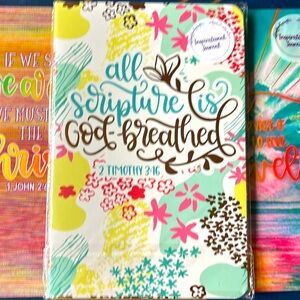 IF WE S
ARE
VE MUST
THE
Chris
1 JOHN 2:6
Inspirational
Journal
all
scripture is
God-breathed
2 TIMOTHY 3:16
Inspirational
Journal